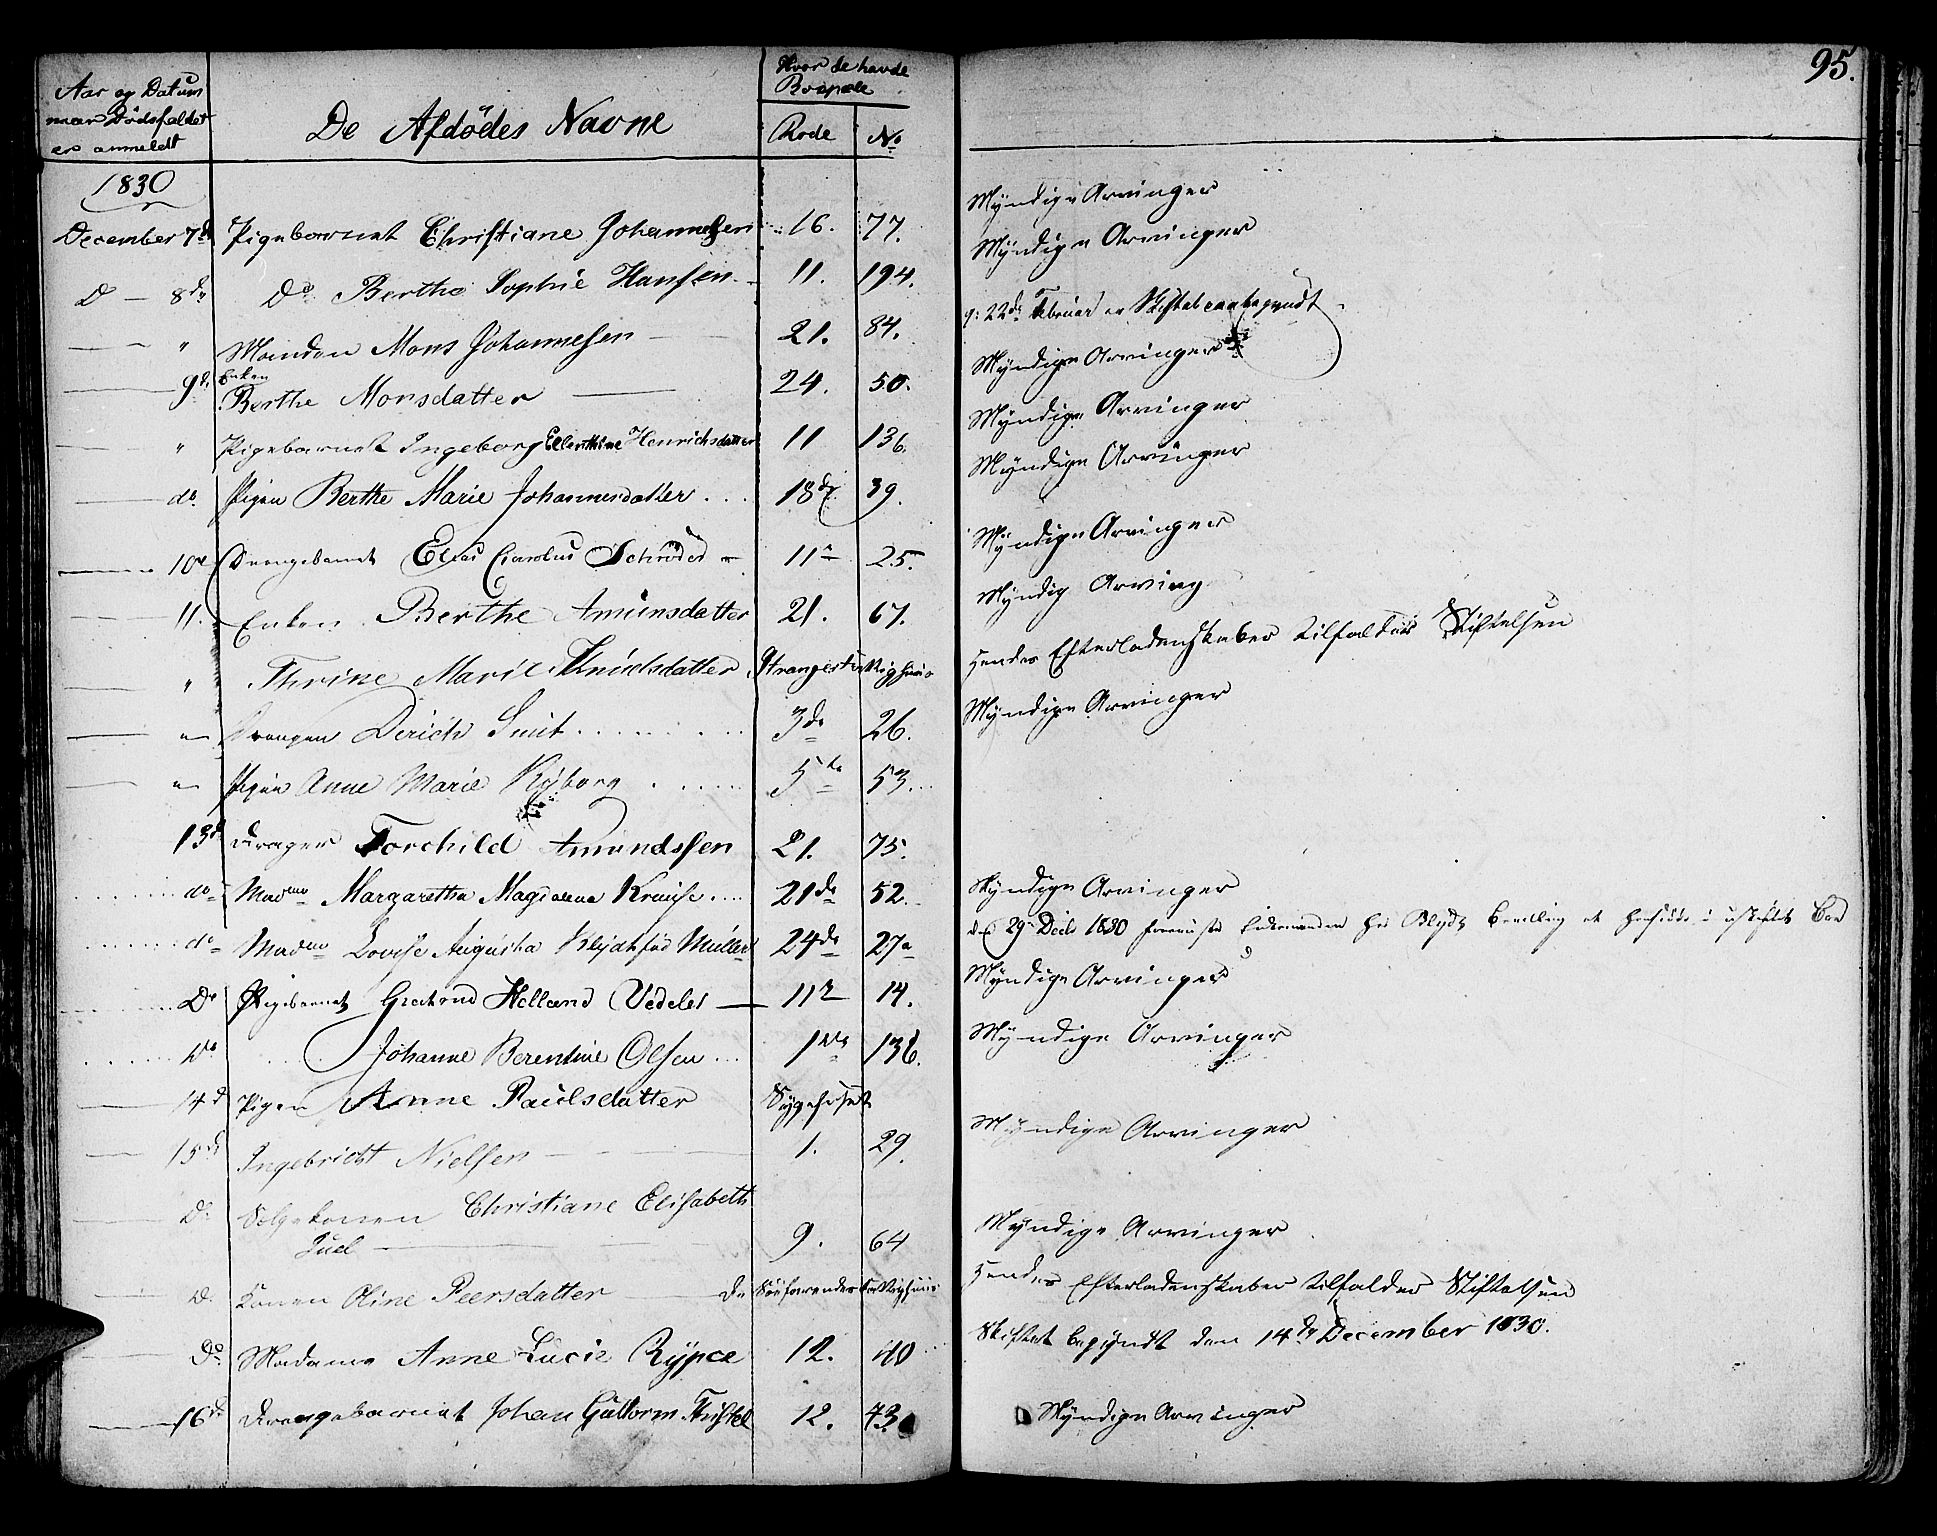 95.
Aar og Datum
naar Dödsfaldet
er anmeldt
De Afdödes Navne
Hvor de havde
Bopæle
Rode No
1830
December 7d Pigebarnet Christiane Johannesen 16. 77. Myndige Arvinger
D – 8de Do Berthe Sophie Hansen 11. 194. Myndige Arvinger
" Manden Mons Johannesen 21. 84. 22de Februar er Skiftet begyndt
9de Enken
Berthe Monsdatter 24. 50. Myndige Arvinger
" Pigebarnet Ingeborg Ellerthine Henrichsdatter 11 136. Myndige Arvinger
do Pigen Berthe Marie Johannesdatter 18de 39. Myndige Arvinger
10de Drengebarnet Elias Carolus Schröder 11 25. Myndige Arvinger
11. Enken Berthe Amunsdatter 21. 67. Myndig Arving
" Thrine Marie Knudsdatter Strangestiftelsen Hendes Efterladenskaber tilfalder Stiftelsen
" Drengen Derich Smit 3de 26. Myndige Arvinger
" Pigen Anne Marie Kyborg 5te 53.
13d Drager Torchild Amundsen 21. 75.
do Madme Margaretha Magdalena Krause 21de 52. Myndige Arvinger
do Madme Lovise Augusta Blydt föd Müller 24de 27a 29 Decb 1830 Enkemanden Hr Blydt Bevilling at hensidde i uskiftet Boe
Do Pigebarnet Gjertrud Helland Vedeler 11te 14. Myndige Arvinger
Do Johanne Berentine Olsen 1ste 136. Myndige Arvinger
14d Pigen Anne Paulsdatter Sygehuset
15de Ingebricht Nielsen 1. 29. Myndige Arvinger
Do Christiane Elisabeth
Juel 9. 64 Myndige Arvinger
D. Konen Oline Peersdatter De Söefarendes Fattighuus Hendes Efterladenskaber tilfalder Stiftelsen
Do Madame Anne Lucie Rÿpce 12. 40 Skiftet begyndt den 14de December 1830.
16de Drengebarnet Johan Guttorm 12. 43 Myndige Arvinger